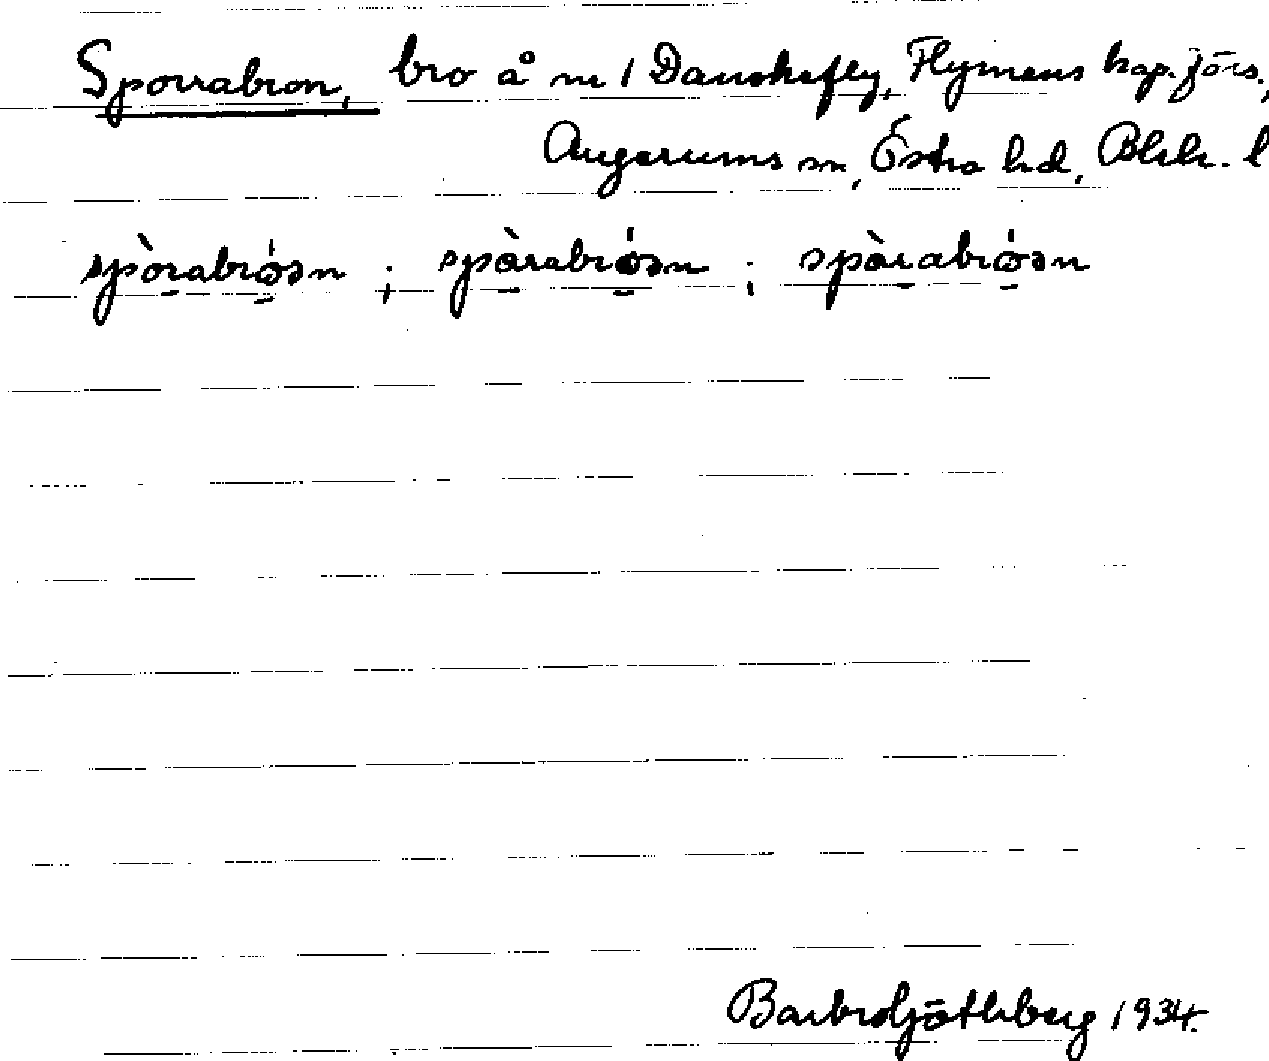 Sporrabron, bro å nr 1 Danskefly, Flymens kap. förs.,
Augerums sn, Östra hd, Blek. l
spòrabrǿən ; spàrabrǿən ; spàrabrǿən
Barbro Götlberg 1934.